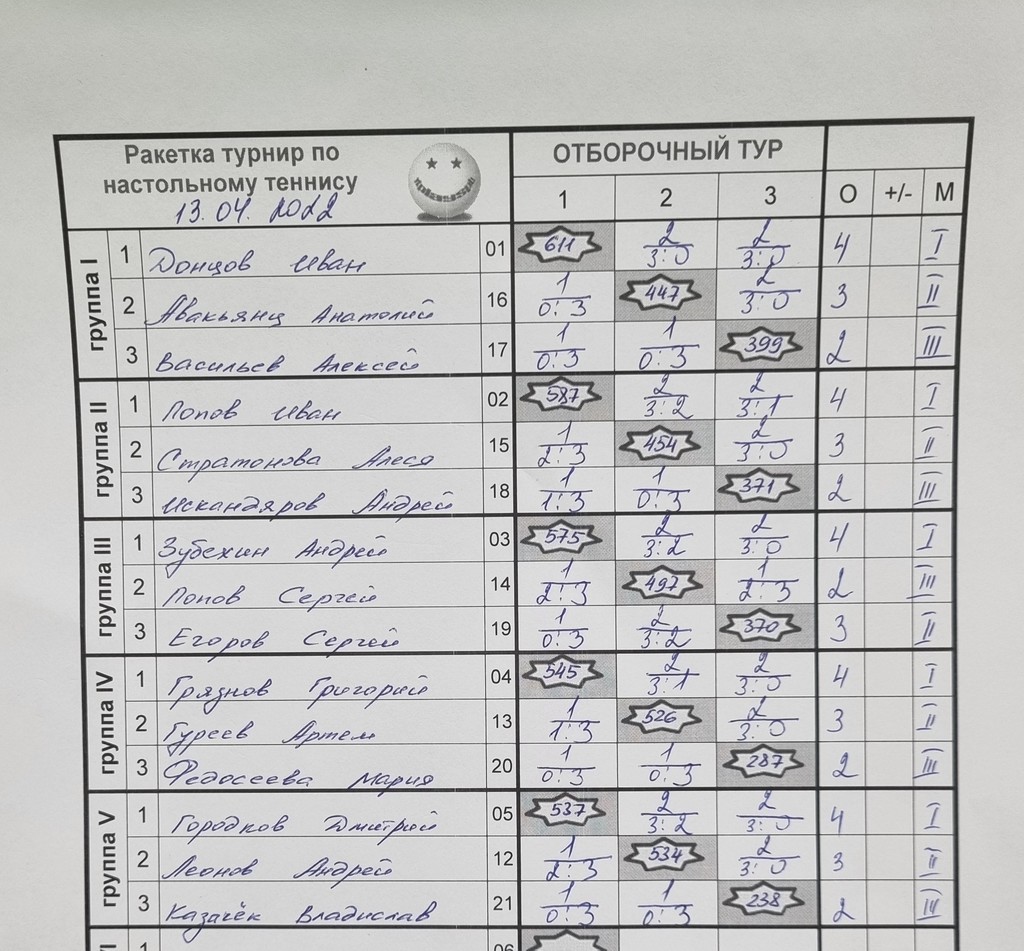 Ракетка турнир по настольному теннису
13.04.2022
ОТБОРОЧНЫЙ ТУР
1 2 3 О +/- М
группа I
1 Донцов Иван 01 611 2 3:0 2 3:0 4 I
2 Авакьянц Анатолий 16 1 0:3 447 2 3:0 3 II
3 Васильев Алексей 17 1 0:3 1 0:3 399 2 III
группа II
1 Попов Иван 02 587 2 3:2 2 3:1 4 I
2 Стратонова Алеся 15 1 2:3 454 2 3:0 3 II
3 Искандяров Андрей 18 1 1:3 1 0:3 371 2 III
группа III
1 Зубехин Андрей 03 575 2 3:2 2 3:0 4 I
2 Попов Сергей 14 1 2:3 497 1 2:3 2 III
3 Егоров Сергей 19 1 0:3 2 3:2 370 3 II
группа IV
1 Грязнов Григорий 04 545 2 3:1 2 3:0 4 I
2 Гуреев Артем 13 1 1:3 526 2 3:0 3 II
3 Федосеева Мария 20 1 0:3 1 0:3 287 2 III
группа V
1 Городков Дмитрий 05 537 2 3:2 2 3:0 4 I
2 Леонов Андрей 12 1 2:3 534 2 3:0 3 II
3 Казачёк Владислав 21 1 0:3 1 0:3 238 2 III
1 06